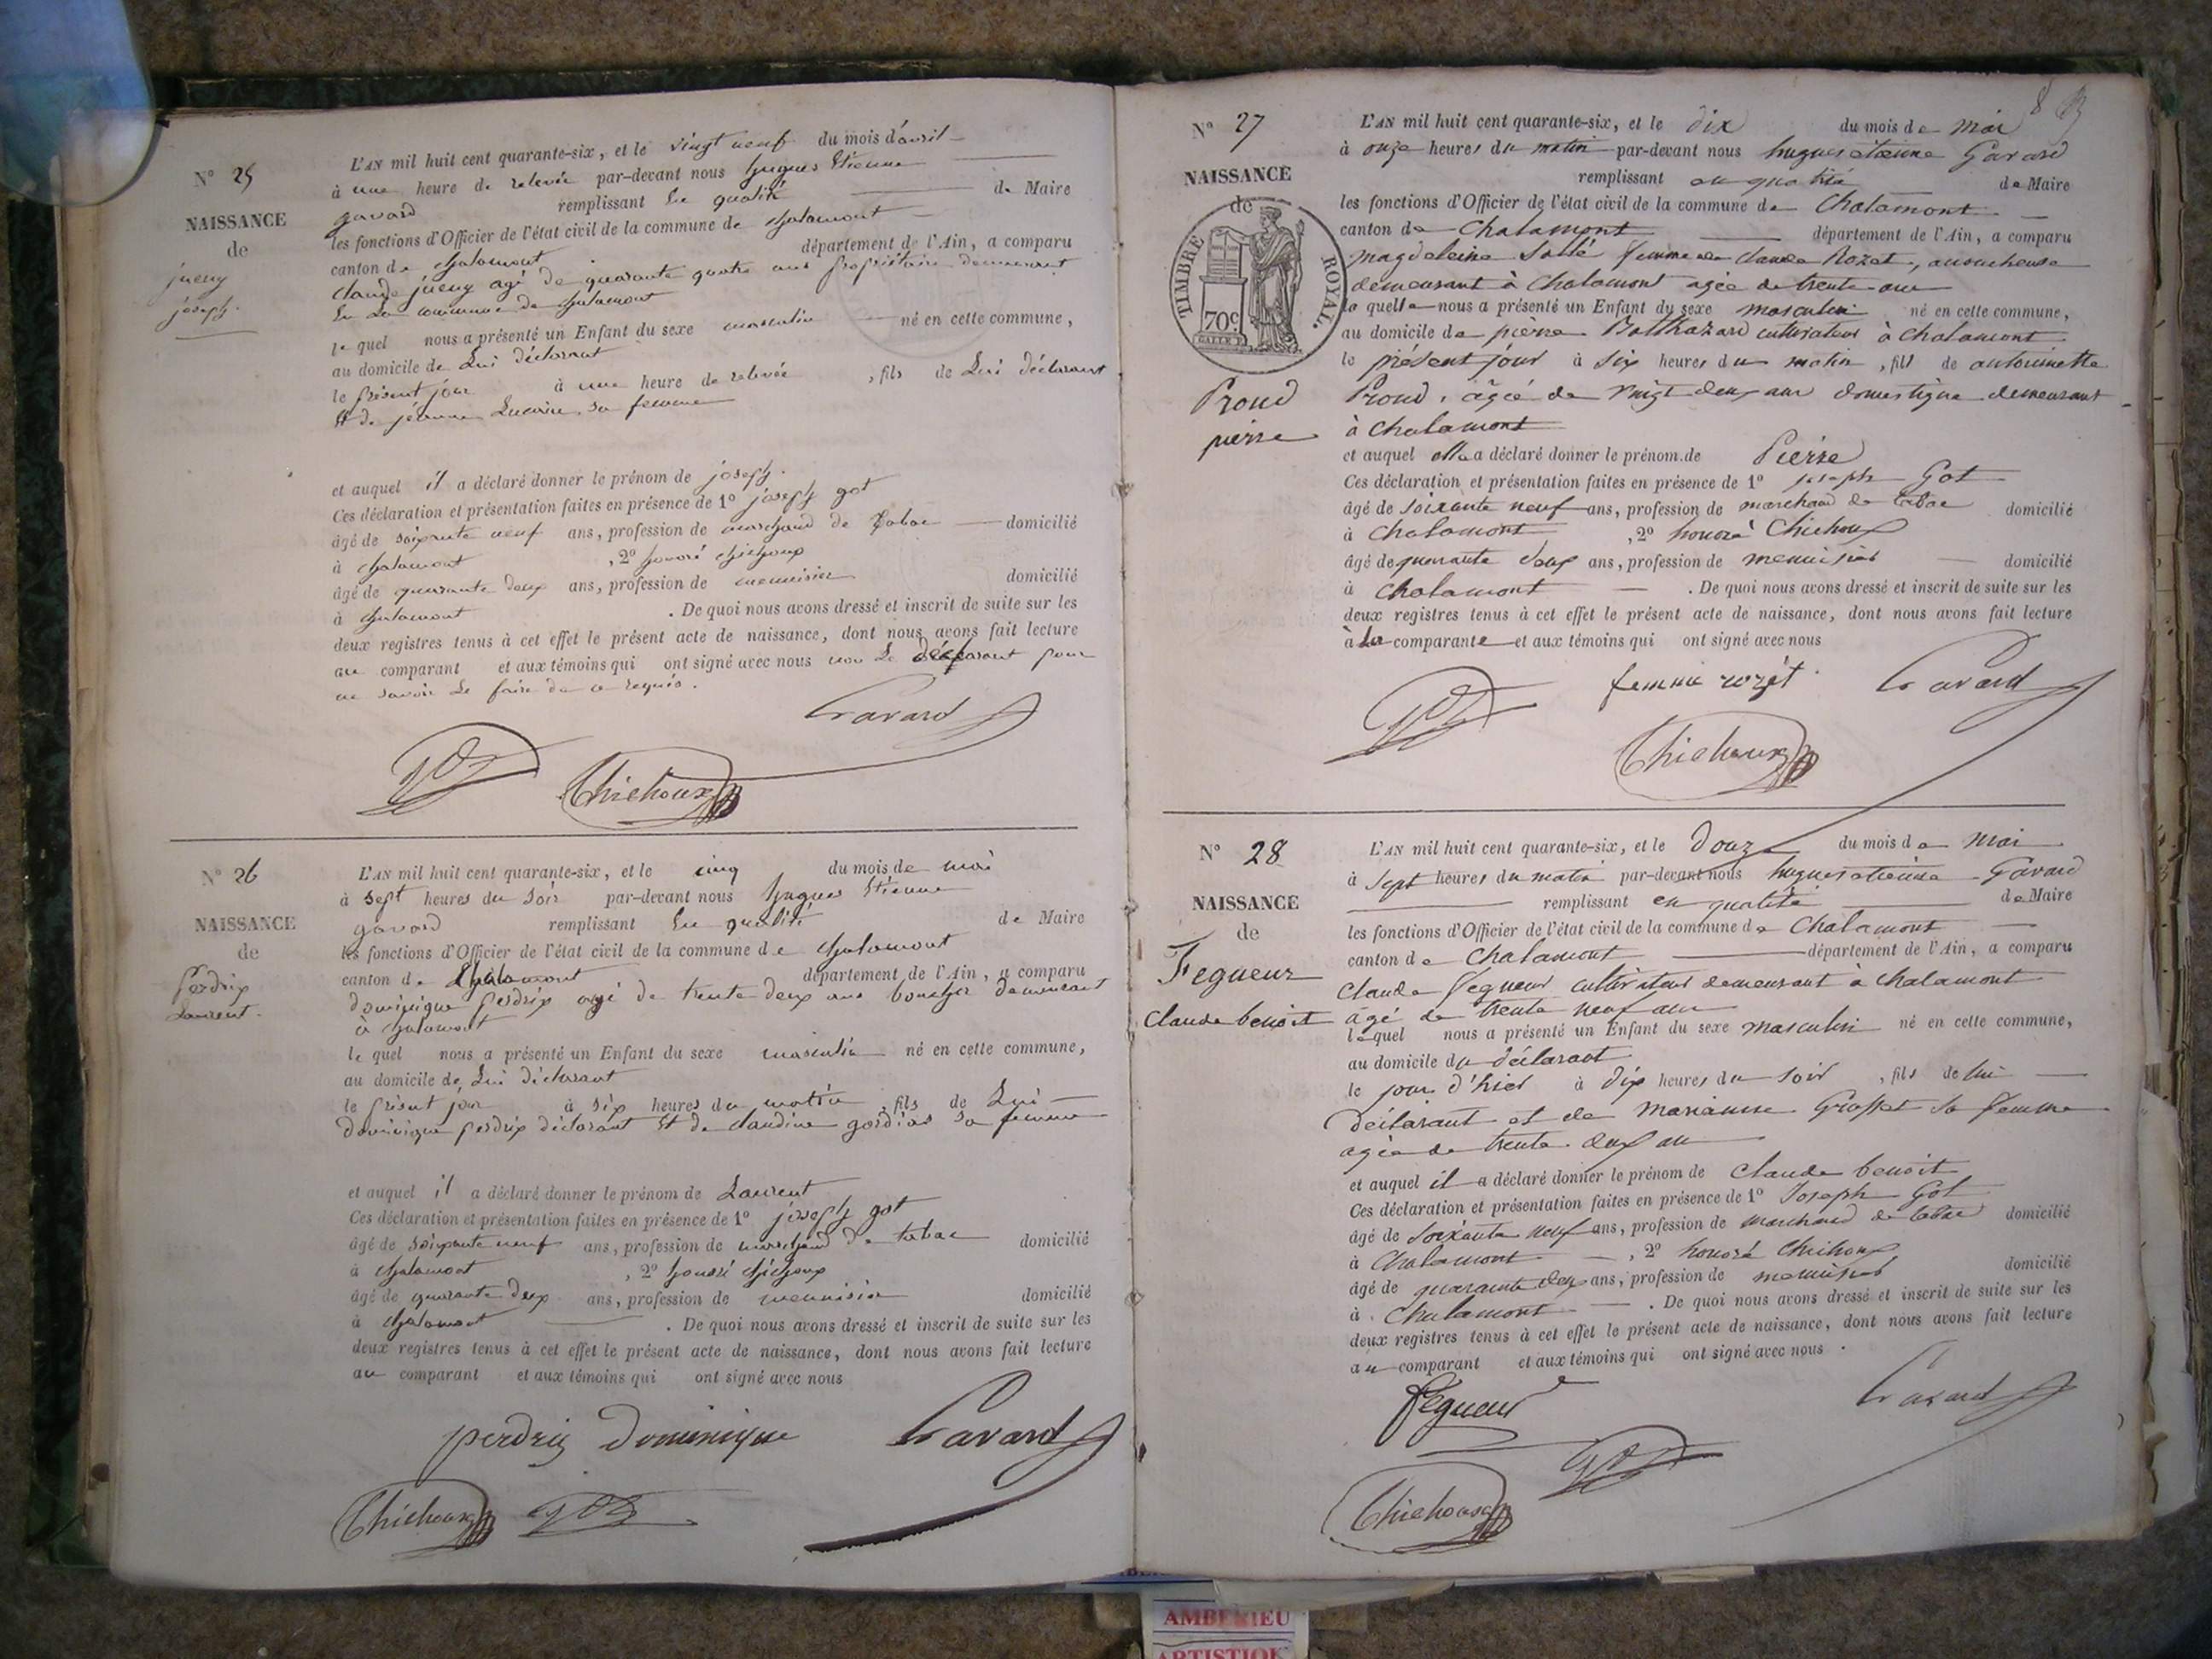 N° 25
NAISSANCE
de
jueny
joseph.
L'AN mil huit cent quarante-six, et le vingt neuf du mois d'avril
à une heure de relevée par-devant nous hugues Etienne
gavard remplissant En qualité de Maire
les fonctions d'Officier de l'état civil de la commune de chalamont
canton de chalamont département de l'Ain, a comparu
claude jueny agé de quarante quatre ans propriétaire demeurant
En la commune de chalamont
lequel nous a présenté un Enfant du sexe masculin né en cette commune,
au domicile de Lui déclarant
le présent jour à une heure de relevée, fils de Lui déclarant
Et de jeanne sa femme
et auquel il a déclaré donner le prénom de joseph.
Ces déclaration et présentation faites en présence de 1° joseph got
âgé de soixante neuf ans, profession de marchand de tabac domicilié
à chalamont, 2° honoré chichoux
âgé de quarante deux ans, profession de menuisier domicilié
à chalamont. De quoi nous avons dressé et inscrit de suite sur les
deux registres tenus à cet effet le présent acte de naissance, dont nous avons fait lecture
au comparant et aux témoins qui ont signé avec nous non le déclarant pour
ne savoir Le faire de ce requis.
Gavard
got
Chichoux
N° 26
NAISSANCE
de
Perdrix
Laurent.
L'AN mil huit cent quarante-six, et le cinq du mois de mai
à sept heures du soir par-devant nous hugues Etienne
gavard remplissant En qualité de Maire
les fonctions d'Officier de l'état civil de la commune de chalamont
canton de chalamont département de l'Ain, a comparu
dominique perdrix agé de trente deux ans boucher demeurant
à chalamont
lequel nous a présenté un Enfant du sexe masculin né en cette commune,
au domicile de Lui déclarant
le présent jour à six heures du matin, fils de Lui
dominique perdrix déclarant Et de claudine sa femme
et auquel il a déclaré donner le prénom de Laurent
Ces déclaration et présentation faites en présence de 1° joseph got
âgé de soixante neuf ans, profession de marchand de tabac domicilié
à chalamont, 2° honoré chichoux
âgé de quarante deux ans, profession de menuisier domicilié
à chalamont. De quoi nous avons dressé et inscrit de suite sur les
deux registres tenus à cet effet le présent acte de naissance, dont nous avons fait lecture
au comparant et aux témoins qui ont signé avec nous
perdrix Dominique Gavard
Chichoux got
8
N° 27
NAISSANCE
de
TIMBRE ROYAL.
70c
Proud
pierre
L'AN mil huit cent quarante-six, et le dix du mois de mai
à onze heures du matin par-devant nous hugues etienne Gavard
remplissant en qualité de Maire
les fonctions d'Officier de l'état civil de la commune de Chalamont
canton de Chalamont département de l'Ain, a comparu
magdeleine Sallé femme de claude Rozet, accoucheuse
demeurant à Chalamont agée de trente ans
laquelle nous a présenté un Enfant du sexe masculin né en cette commune,
au domicile de pierre Balthazard cultivateur à chalamont
le présent jour à six heures du matin, fils de antoinette
Proud, âgée de vingt deux ans domestique demeurant
à chalamont
et auquel elle a déclaré donner le prénom de Pierre
Ces déclaration et présentation faites en présence de 1° joseph Got
âgé de soixante neuf ans, profession de marchand de tabac domicilié
à Chalamont, 2° honoré Chichoux
âgé de quarante deux ans, profession de menuisier domicilié
à chalamont. De quoi nous avons dressé et inscrit de suite sur les
deux registres tenus à cet effet le présent acte de naissance, dont nous avons fait lecture
à la comparante et aux témoins qui ont signé avec nous
got femme rozet Gavard
Chichoux
N° 28
NAISSANCE
de
Fegueux
Claude benoit
L'AN mil huit cent quarante-six, et le Douze du mois de mai
à sept heures du matin par-devant nous hugues etienne Gavard
remplissant en qualité de Maire
les fonctions d'Officier de l'état civil de la commune de Chalamont
canton de Chalamont département de l'Ain, a comparu
Claude fegueux cultivateur demeurant à chalamont
âgé de trente neuf ans
lequel nous a présenté un Enfant du sexe masculin né en cette commune,
au domicile du déclarant
le jour d'hier à dix heures du soir, fils de lui
déclarant et de marianne Grosset sa femme
agée de trente deux ans
et auquel il a déclaré donner le prénom de Claude benoit
Ces déclaration et présentation faites en présence de 1° Joseph Got
âgé de soixante neuf ans, profession de marchand de tabac domicilié
à Chalamont, 2° honoré Chichoux
âgé de quarante deux ans, profession de menuisier domicilié
à Chalamont. De quoi nous avons dressé et inscrit de suite sur les
deux registres tenus à cet effet le présent acte de naissance, dont nous avons fait lecture
au comparant et aux témoins qui ont signé avec nous.
fegueux Gavard
got
Chichoux
AMBERIEU